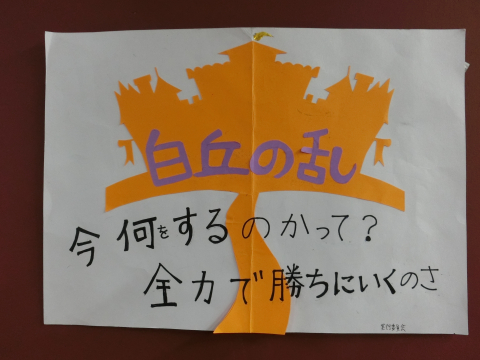 白丘の乱
今何をするのかって？
全力で勝ちにいくのさ